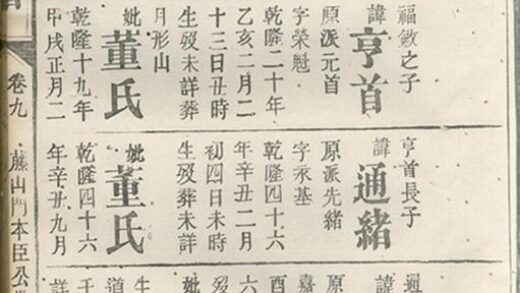 福敏之子
諱亨首
原派元首
字榮慰
乾隆二十年
乙亥二月二
十三日丑時
生歿未詳葬
月形山
妣董氏
乾隆十九年
甲戌正月二
亨首長子
諱通緒
原派先緒
字永基
乾隆四十六
年辛丑二月
初四日未時
生歿葬未詳
妣董氏
乾隆四十六
年辛丑九月
通
原
嘉
酉
六
歿
生
道
詳
卷九
藤山門本臣公